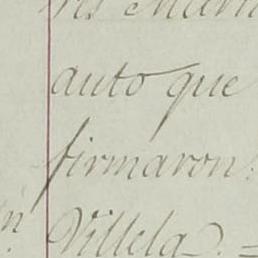 auto que
firmaron:
Villela. =